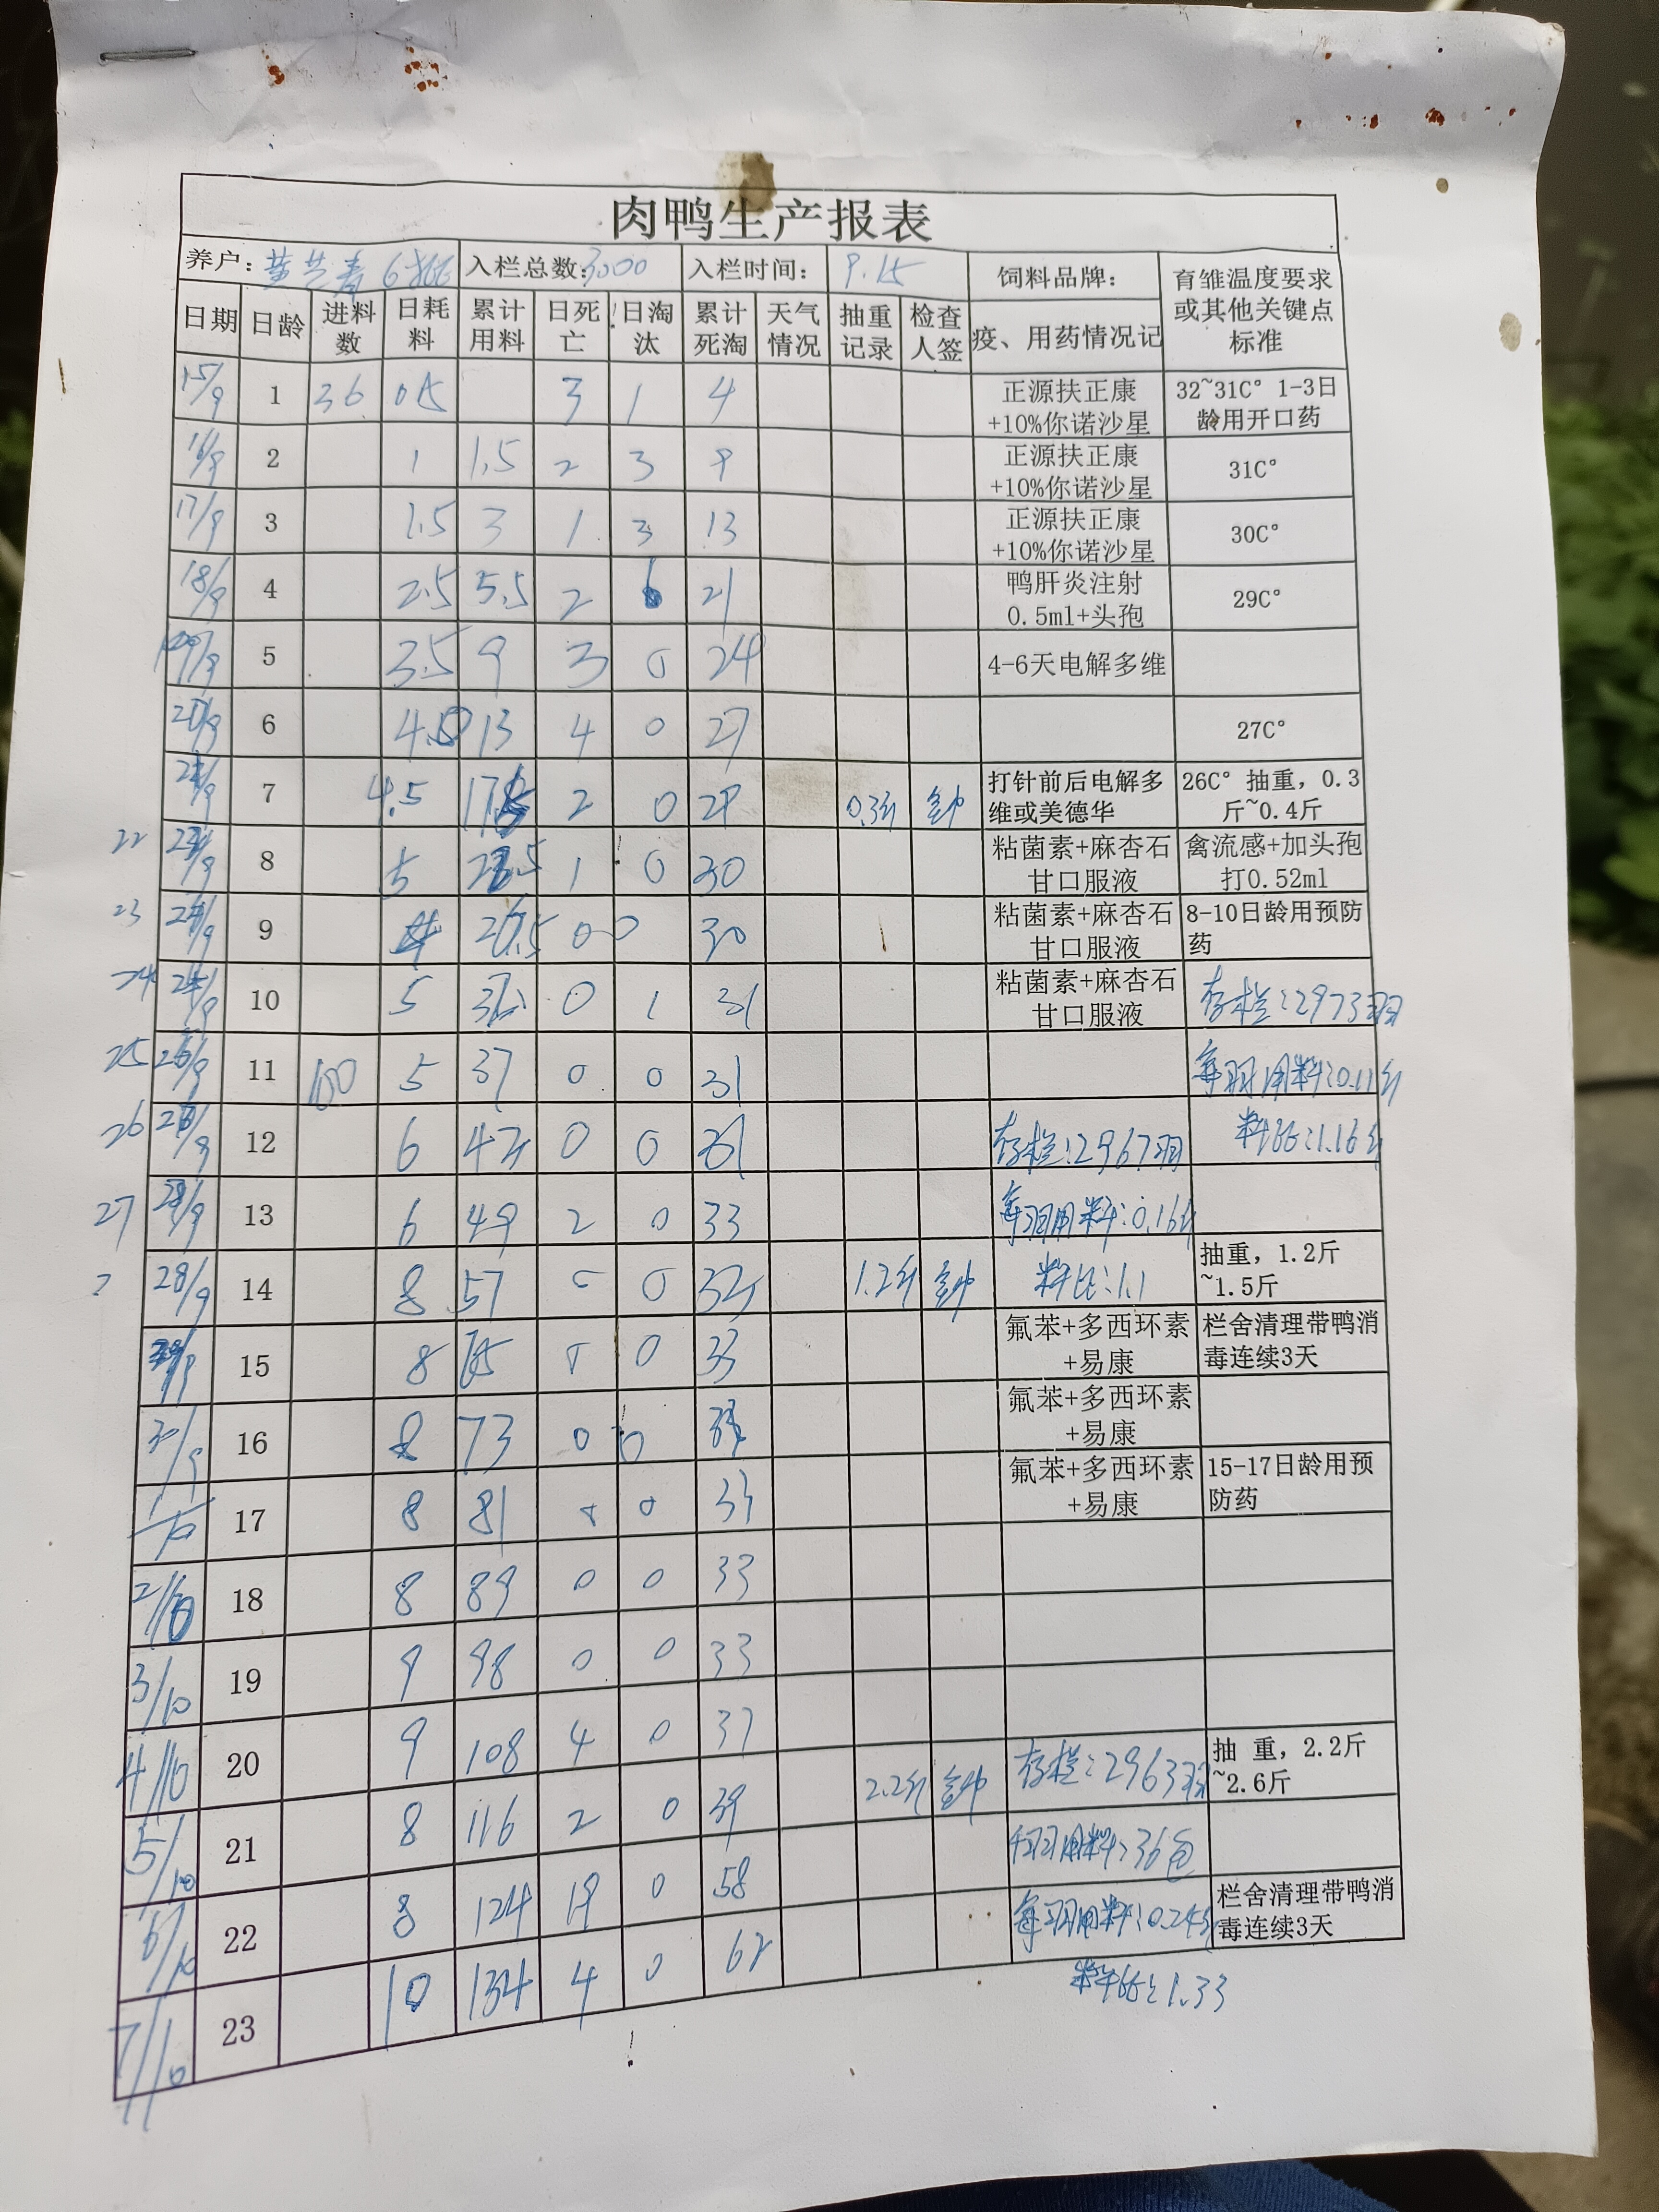 肉鸭生产报表
养户： 入栏总数：3000 入栏时间：9.15 饲料品牌： 育雏温度要求或其他关键点标准
日期 日龄 进料数 日耗料 累计用料 日死亡 日淘汰 累计死淘 天气情况 抽重记录 检查人签 疫、用药情况记
15/9 1 36 0.5 3 1 4 正源扶正康+10%你诺沙星 32~31C° 1-3日龄用开口药
16/9 2 1 1.5 2 3 9 正源扶正康+10%你诺沙星 31C°
17/9 3 1.5 3 1 3 13 正源扶正康+10%你诺沙星 30C°
18/9 4 2.5 5.5 2 6 21 鸭肝炎注射0.5ml+头孢 29C°
5 3.5 9 3 0 24 4-6天电解多维
6 13 4 0 27 27C°
7 4.5 2 0 29 0.3斤 打针前后电解多维或美德华 26C° 抽重，0.3斤~0.4斤
22 8 5 1 0 30 粘菌素+麻杏石甘口服液 禽流感+加头孢打0.52ml
23 9 0 0 30 粘菌素+麻杏石甘口服液 8-10日龄用预防药
24 10 5 0 1 31 粘菌素+麻杏石甘口服液 存栏：2973羽
25 26/9 11 100 5 37 0 0 31 每羽用料：0.11斤
26 12 6 0 0 31 存栏：2967羽 料比：1.16
27 28/9 13 6 49 2 0 33 每羽用料：0.16斤
28/9 14 8 57 0 0 1.2斤 料比：1.1 抽重，1.2斤~1.5斤
15 8 65 0 0 33 氟苯+多西环素+易康 栏舍清理带鸭消毒连续3天
30/9 16 8 73 0 0 氟苯+多西环素+易康
1/10 17 8 81 0 0 33 氟苯+多西环素+易康 15-17日龄用预防药
2/10 18 8 89 0 0 33
3/10 19 9 98 0 0 33
4/10 20 9 108 4 0 37 2.2斤 存栏：2963羽 抽 重，2.2斤~2.6斤
5/10 21 8 116 2 0 39 用料：36包
6/10 22 8 124 19 0 58 每羽用料：0.24 栏舍清理带鸭消毒连续3天
7/10 23 10 134 4 0 62 料比：1.33